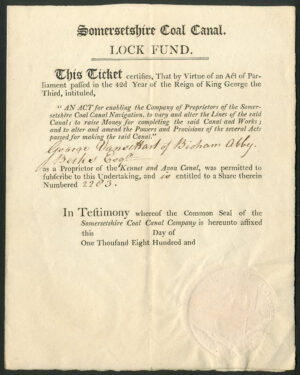 Somersetshire Coal Canal.
LOCK FUND.
This Ticket certifies, That by Virtue of an Act of Par-
liament passed in the 42d Year of the Reign of King George the
Third, intituled,
"AN ACT for enabling the Company of Proprietors of the Somer-
setshire Coal Canal Navigation, to vary and alter the Lines of the said
Canal; to raise Money for completing the said Canal and Works;
and to alter and amend the Powers and Provisions of the several Acts
passed for making the said Canal."
George Vansittart of Bisham Abby,
Berks Esqr.
as a Proprietor of the Kennet and Avon Canal, was permitted to
subscribe to this Undertaking, and is entitled to a Share therein
Numbered 2283.
In Testimony whereof the Common Seal of the
Somersetshire Coal Canal Company is hereunto affixed
this Day of
One Thousand Eight Hundred and